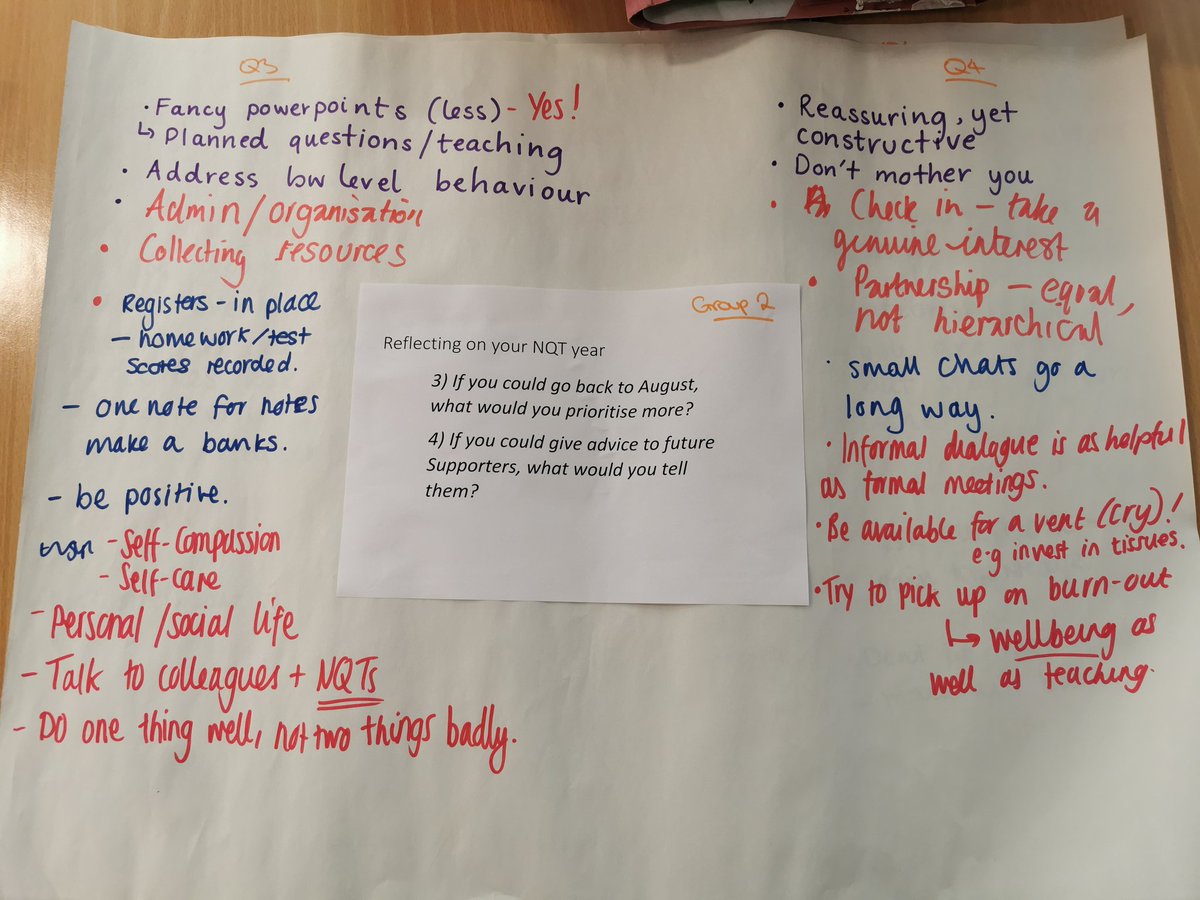 Q3
· Fancy powerpoints (less) - Yes!
↳ Planned questions/teaching
· Address low level behaviour
· Admin/organisation
· Collecting resources
· Registers - in place
- homework/test
scores recorded.
- one note for notes
make a banks.
- be positive.
- Self-Compassion
- Self-care
- Personal/social life
- Talk to colleagues + NQTs
- Do one thing well, not two things badly.
Group 2
Reflecting on your NQT year
3) If you could go back to August,
what would you prioritise more?
4) If you could give advice to future
Supporters, what would you tell
them?
Q4
· Reassuring, yet
constructive
· Don't mother you
· Check in - take a
genuine interest
· Partnership - equal,
not hierarchical
· small chats go a
long way.
· Informal dialogue is as helpful
as formal meetings.
· Be available for a vent (cry)!
e.g invest in tissues.
· Try to pick up on burn-out
↳ wellbeing as
well as teaching.